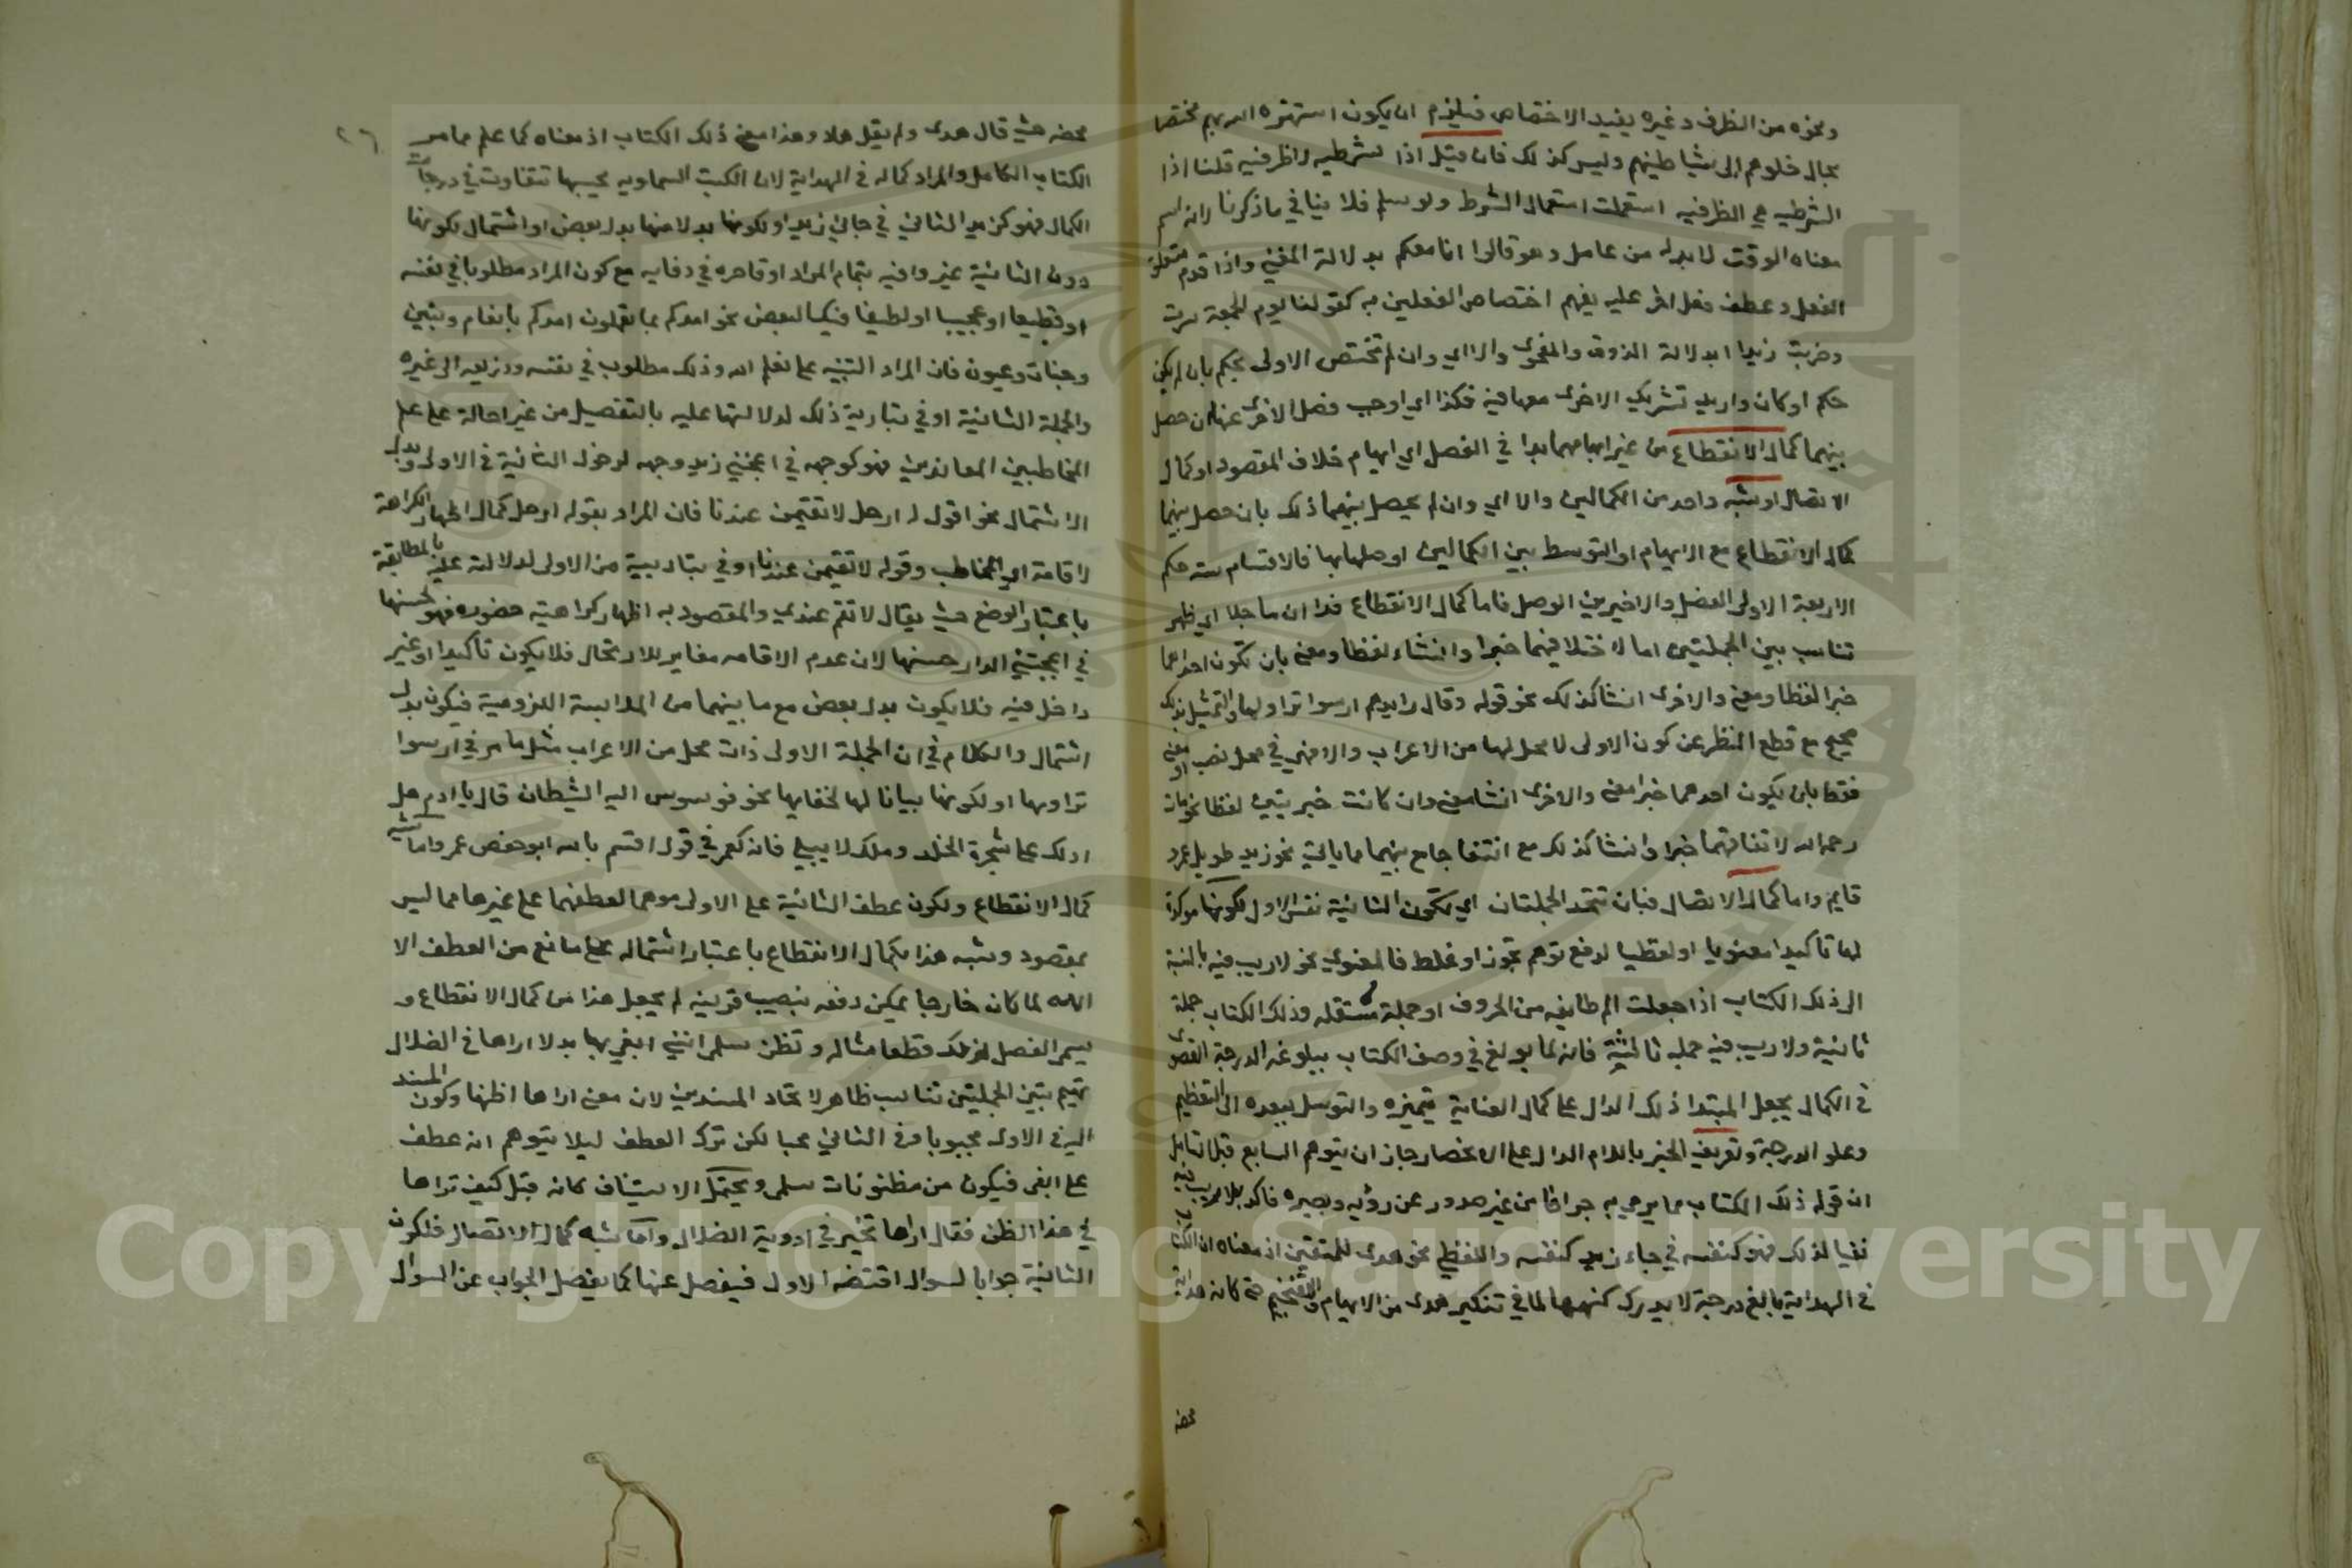 ونحوه من الظرف وغيره يفيد الاختصاص فيلزم ان يكون استهزه الله بهم مختصا
بحال خلوهم الى شياطينهم وليس كذلك فان قيل اذا شرطيه لا ظرفيه قلنا اذا
الشرطيه هي الظرفيه استعملت استعمال الشرط ولو سلم فلا ينافي ماذكرنا لانه اسم
معناه الوقت لا بد له من عامل وهو قالوا انا معكم بدلالة المعنى واذا قدم متعلق
الفعل وعطف فعل اخر عليه يفهم اختصاص الفعلين به كقولنا يوم الجمعة سرت
وضربت زيدا بدلالة الذوق والفحوى والا اي وان لم تختص الاولى بحكم بان لم يكن
حكم او كان واريد تشريك الاخرى معها فيه فكذا اي اوجب فصل الاخرى عنها ان حصل
بينهما كمال الانقطاع من غير ابهامهما بدا في الفصل اي ابهام خلاف المقصود او كمال
الاتصال او شبه واحد من الكمالين والا اي وان لم يحصل بينهما ذلك بان حصل بينهما
كمال الانقطاع مع الابهام او التوسط بين الكمالين اوصلهابها فالاقسام سته حكم
الاربعة الاولى الفصل والاخيرين الوصل فاما كمال الانقطاع فدا ان ما جلا اي ظهر
تناسب بين الجملتين اما لاختلافهما خبرا وانشاء لفظا ومعنى بان تكون احداهما
خبرا لفظا ومعنى والاخرى انشا كذلك نحو قوله وقال رايدهم ارسوا نزاولها والتمثيل بذلك
صحيح مع قطع النظر عن كون الاولى لا محل لها من الاعراب والا فهي في محل نصب او معنى
فقط بان يكون احدهما خبرا معنى والاخرى انشا معنى وان كانت خبريتين لفظا نحو مات
رحمه الله لا تفاقهما خبرا وانشا كذلك مع انتفا جامع بينهما مما ياتي نحو زيد طويل عمرو
قايم واما كمال الاتصال فبان تتحد الجملتان اي تكون الثانية نفس الاولى لكونها موكدة
لها تاكيدا معنويا او لفظيا لدفع توهم تجوز او غلط فالمعنوي نحو لا ريب فيه بالنسبة
الى ذلك الكتاب اذا جعلت الم طايفه من الحروف او جملة مستقله وذلك الكتاب جملة
ثانية ولا ريب فيه جمله ثالثة فانه لما بولغ في وصف الكتاب ببلوغه الدرجة القصوى
في الكمال بجعل المبتدا ذلك الدال على كمال العناية بتميزه والتوسل ببعده الى التعظيم
وعلو الدرجة وتعريف الخبر باللام الدال على الانحصار جاز ان يتوهم السامع قبل التامل
ان قوله ذلك الكتاب مما يرمي به جزافا من غير صدور عن رؤيه وبصيره فاكد بلا ريب فيه
نفيا لذلك فهو كنفسه في جاء زيد كنفسه واللفظي نحو هدى للمتقين اذ معناه ان الكتاب
في الهداية بالغ درجة لا يدرك كنهها لما في تنكير هدى من الابهام والتفخيم حتى كانه هداية
محضه
محضه حيث قال هدى ولم يقل هاد وهذا معنى ذلك الكتاب اذ معناه كما علم مما مر
الكتاب الكامل والمراد كماله في الهداية لان الكتب السماويه بحسبها تتفاوت في درجات
الكمال فهو كزيد الثاني في جاني زيد او لكونها بدلا منها بدل بعض او اشتمال لكونها
دون الثانية غير وافيه بتمام المراد او قاصره في وفايه مع كون المراد مطلوبا في نفسه
او فظيعا او عجيبا او لطيفا فبدل البعض نحو امدكم بما تعلمون امدكم بانعام وبنين
وجنات وعيون فان المراد التنبيه على نعم الله وذلك مطلوب في نفسه وذريعه الى غيره
والجملة الثانية اوفي بتادية ذلك لدلالتها عليه بالتفصيل من غير احالة على علم
المخاطبين المعاندين فهو كوجهه في اعجبني زيد وجهه لدخول الثانية في الاولى وبدل
الاشتمال نحو اقول له ارحل لا تقيمن عندنا فان المراد بقوله ارحل كمال اظهار الكراهة
لاقامة اي المخاطب وقوله لا تقيمن عندنا اوفي بتاديبية من الاولى لدلالته عليه بالمطابقة
باعتبار الوضع حيث يقال لا تقم عندي والمقصود به اظهار كراهيته حضوره فهو كحسنها
في اعجبتني الدار حسنها لان عدم الاقامه مغاير للارتحال فلا يكون تاكيدا او غير
داخل فيه فلا يكون بدل بعض مع ما بينهما من الملابسة اللزومية فيكون بدل
اشتمال والكلام في ان الجملة الاولى ذات محل من الاعراب مثل ما مر في ارسوا
نزاولها او لكونها بيانا لها لخفايها نحو فوسوس اليه الشيطان قال يا ادم هل
ادلك على شجرة الخلد وملك لا يبلى فانه كعمر في قوله اقسم بالله ابو حفص عمر واما شبه
كمال الانقطاع ولكون عطف الثانية على الاولى موهما لعطفها على غيرها مما ليس
بمقصود وشبه هذا بكمال الانقطاع باعتبار اشتماله على مانع من العطف الا
انه لما كان خارجا يمكن دفعه بنصب قرينه لم يجعل هذا من كمال الانقطاع و
يسمى الفصل لذلك قطعا مثاله وتظن سلمى انني ابغي بها بدلا اراها في الضلال
تهيم بين الجملتين تناسب ظاهر لاتحاد المسندين لان معنى اراها اظنها وكون المسند
اليه في الاولى محبوبا وفي الثاني محبا لكن ترك العطف ليلا يتوهم انه عطف
على ابغي فيكون من مظنونات سلمى ويحتمل الاستيناف كانه قيل كيف تراها
في هذا الظن فقال اراها تتحير في اودية الضلال واما شبه كمال الاتصال فلكون
الثانية جوابا لسوال اقتضته الاولى فيفصل عنها كما يفصل الجواب عن السوال
٢٦
Copyright © King Saud University